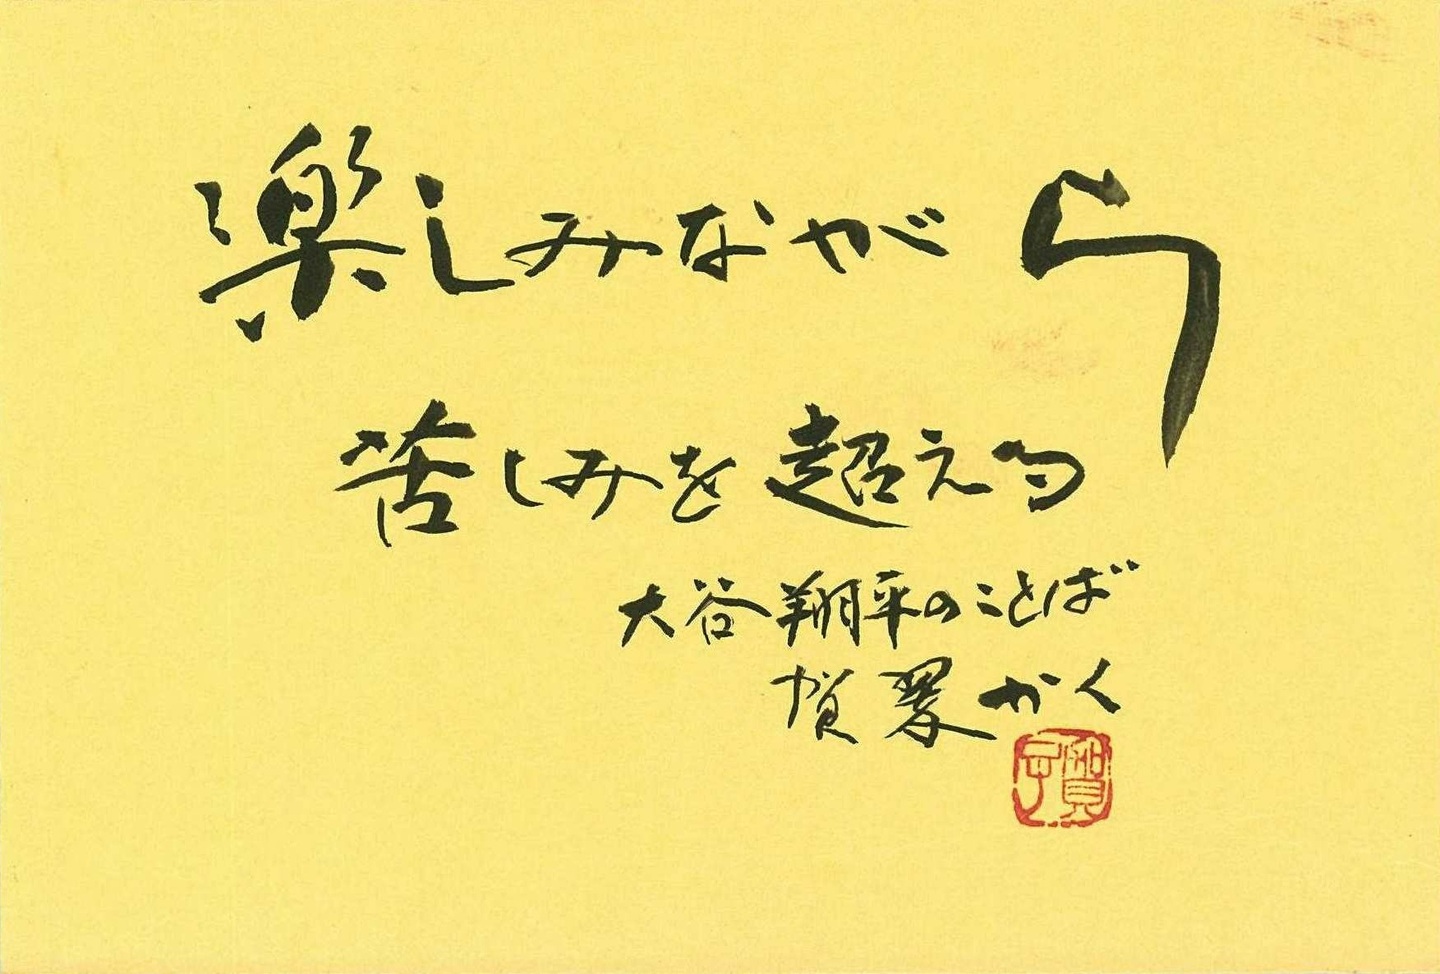 楽しみながら
苦しみを超える
大谷翔平のことば
賀翠かく
賀